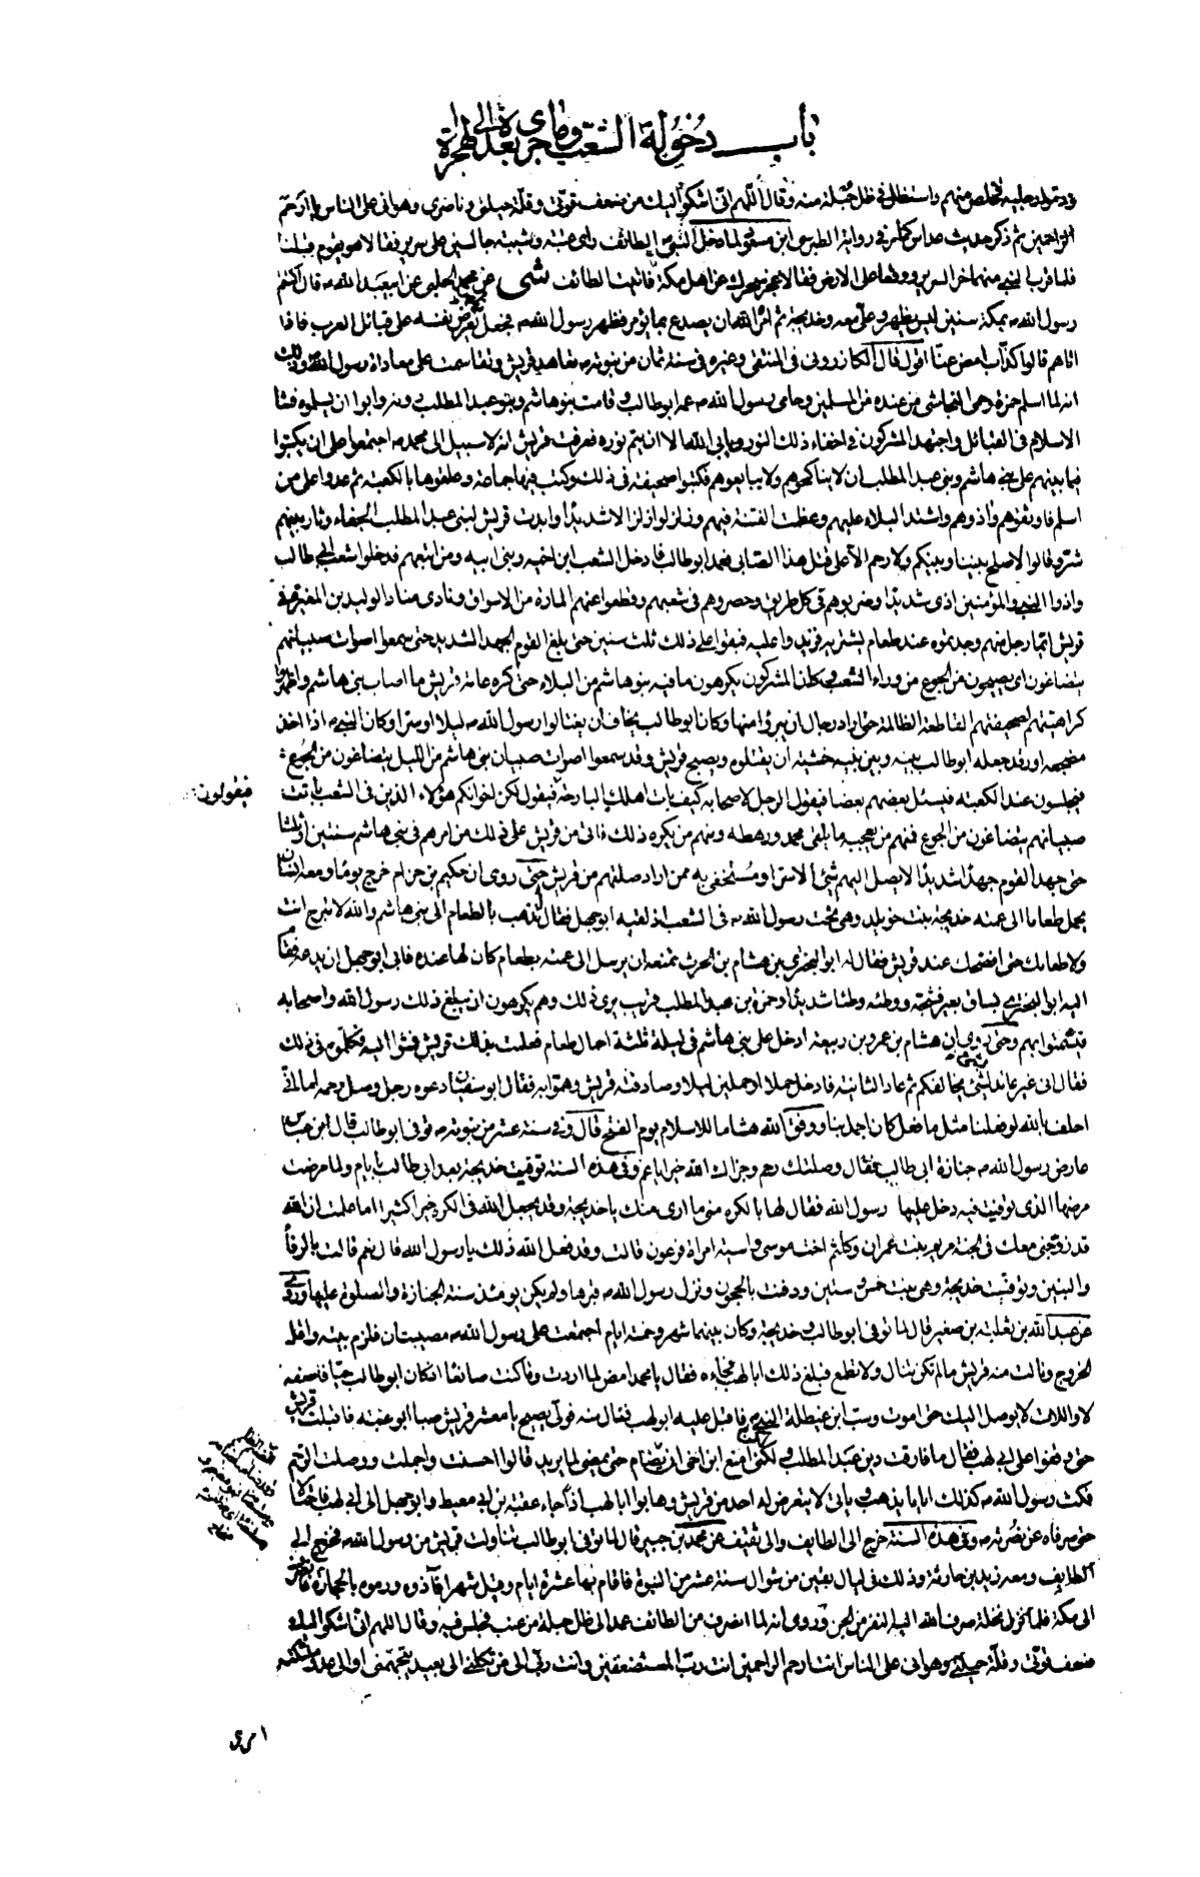 باب دخوله الشعب وما جرى بعده الى الهجرة
ودقوا رجليه فخلص منهم واستظل في ظل حبلة منه وقال اللهم اني اشكو اليك من ضعف قوتي وقلة حيلتي وناصري وهواني على الناس يا ارحم
الراحمين ثم ذكر حديث عداس كما مر في رواية الطبرسي ابن مسعود لما دخل النبي ص الطائف راى عتبة وشيبة جالسين على سرير فقالا هو يقوم قبلنا
فلما قرب النبي منهما خر السرير ووقعا على الارض فقالا عجز سحرك عن اهل مكة فاتيت الطائف شى عن محمد الحلبي عن ابي عبد الله ع قال اكتتم
رسول الله ص بمكة سنين ليس يظهر وعلي معه وخديجة ثم امره الله ان يصدع بما يؤمر فظهر رسول الله ص فجعل يعرض نفسه على قبائل العرب فاذا
اتاهم قالوا كذاب امض عنا اقول قال الكازروني في المنتقى وغيره في سنة ثمان من نبوته ص تعاهد قريش وتقاسمت على معاداة رسول الله ص وذلك
انه لما اسلم حمزة وحمى النجاشي من عنده من المسلمين وحامى رسول الله ص عمه ابو طالب وقامت بنو هاشم وبنو عبد المطلب دونه وابوا ان يسلموه فشا
الاسلام في القبائل واجتهد المشركون في اخفاء ذلك النور ويابى الله الا ان يتم نوره فعرفت قريش انه لا سبيل الى محمد ص اجتمعوا على ان يكتبوا
فيما بينهم على بني هاشم وبني عبد المطلب ان لا يناكحوهم ولا يبايعوهم فكتبوا صحيفة في ذلك وكتب فيها جماعة وعلقوها بالكعبة ثم عدوا على من
اسلم فاوثقوهم واذوهم واشتد البلاء عليهم وعظمت الفتنة فيهم وزلزلوا زلزالا شديدا وابدت قريش لبني عبد المطلب الجفاء وثار بينهم
شر وقالوا لا صلح بيننا وبينكم ولا رحم الا على قتل هذا الصابي فعمد ابو طالب فادخل الشعب ابن اخيه وبني ابيه ومن اتبعهم فدخلوا شعب ابي طالب
واذوا النبي والمؤمنين اذى شديدا وضربوهم في كل طريق وحصروهم في شعبهم وقطعوا عنهم المادة من الاسواق ونادى مناد الوليد بن المغيرة في
قريش ايما رجل منهم وجدتموه عند طعام يشتريه فزيدوا عليه فبقوا على ذلك ثلث سنين حتى بلغ القوم الجهد الشديد حتى سمعوا اصوات صبيانهم
يتضاغون اى يصيحون من الجوع من وراء الشعب وكان المشركون يكرهون ما فيه بنو هاشم من البلاء حتى كره عامة قريش ما اصاب بني هاشم واظهروا
كراهيتهم لصحيفتهم القاطعة الظالمة حتى اراد رجال ان يبرؤا منها وكان ابو طالب يخاف ان يغتالوا رسول الله ص ليلا او سرا وكان النبي ص اذا اخذ
مضجعه او رقد جعله ابو طالب بينه وبين بنيه خشية ان يقتلوه ويصبح قريش وقد سمعوا اصوات صبيان بني هاشم من الليل يتضاغون من الجوع
فيجلسون عند الكعبة فيسئل بعضهم بعضا فيقول الرجل لاصحابه كيف بات اهلك البارحة فيقول لكن اخوانكم هؤلاء الذين في الشعب بات
فيقولون
صبيانهم يتضاغون من الجوع فمنهم من يعجبه ما يلقى محمد ورهطه ومنهم من يكره ذلك فاتى من قريش على ذلك من امرهم في بني هاشم سنتين او ثلثا
حتى جهد القوم جهدا شديدا لا يصل اليهم شئ الا سرا ومستخفى به ممن اراد صلتهم من قريش حتى روى ان حكيم بن حزام خرج يوما ومعه انسان
يحمل طعاما الى عمته خديجة بنت خويلد وهي تحت رسول الله ص في الشعب اذ لقيه ابو جهل فقال تذهب بالطعام الى بني هاشم والله لا تبرح انت
ولا طعامك حتى افضحك عند قريش فقال له ابو البختري بن هشام بن الحرث تمنعه ان يرسل الى عمته بطعام كان لها عنده فابى ابو جهل ان يدعه فقام
اليه ابو البختري بساق بعير فشجه ووطئه وطئا شديدا وحمزة بن عبد المطلب قريب يرى ذلك وهم يكرهون ان يبلغ ذلك رسول الله واصحابه
فيشمتوا بهم وحتى روى ان هشام بن عمرو بن ربيعة ادخل على بني هاشم في ليلة ثلثة احمال طعام فعلمت بذلك قريش فمشوا اليه فكلموه في ذلك
فقال اني غير عائد لشئ يخالفكم ثم عاد الثانية فادخل حملا او حملين ليلا وصادفته قريش وهموا به فقال ابو سفيان دعوه رجل وصل رحمه اما اني
احلف بالله لو فعلنا مثل ما فعل كان اجمل بنا ووفق الله هشاما للاسلام يوم الفتح قال وفي سنة عشر من نبوته ص توفي ابو طالب قال ابن عباس
عارض رسول الله ص جنازة ابي طالب فقال وصلتك رحم وجزاك الله خيرا يا عم وفي هذه السنة توفيت خديجة بعد ابي طالب بايام ولما مرضت
مرضها الذي توفيت فيه دخل عليها رسول الله فقال لها بالكره مني ما ارى منك يا خديجة وقد يجعل الله في الكره خيرا كثيرا اما علمت ان الله
قد زوجني معك في الجنة مريم بنت عمران وكلثم اخت موسى واسية امراة فرعون قالت وقد فعل الله ذلك يا رسول الله قال نعم قالت بالرفاء
والبنين وتوفيت خديجة وهي بنت خمس وستين ودفنت بالحجون ونزل رسول الله ص قبرها ولم يكن يومئذ سنة الجنازة والصلوة عليها وروى
عن عبد الله بن ثعلبة بن صغير قال لما توفي ابو طالب وخديجة وكان بينهما شهر وخمسة ايام اجتمعت على رسول الله ص مصيبتان فلزم بيته واقل
الخروج ونالت منه قريش ما لم تكن تنال ولا تطمع فبلغ ذلك ابا لهب فجاءه فقال يا محمد امض لما اردت وما كنت صانعا اذ كان ابو طالب حيا فاصنعه
لا واللات لا يوصل اليك حتى اموت وسب ابن غيطلة النبي ص فاقبل عليه ابو لهب فنال منه فولى يصيح يا معشر قريش صبا ابو عتبة فاقبلت قريش
حتى وقفوا على ابي لهب فقال ما فارقت دين عبد المطلب ولكني امنع ابن اخي ان يضام حتى يمضي لما يريد قالوا احسنت واجملت ووصلت الرحم
فمكث رسول الله ص كذلك اياما يذهب وياتي لا يتعرض له احد من قريش وهابوا ابا لهب اذ جاء عقبة بن ابي معيط وابو جهل الى ابي لهب فاحتالا
حتى صرفاه عن نصرته ص وفي هذه السنة خرج الى الطايف والى ثقيف عن محمد بن جبير قال لما توفي ابو طالب تناولت قريش من رسول الله ص فخرج الى
الطايف ومعه زيد بن حارثة وذلك في ليال بقين من شوال سنة عشر من النبوة فاقام بها عشرة ايام وقيل شهرا فآذوه ورموه بالحجارة فانصرف
الى مكة فلما نزل نخلة صرف الله اليه النفر من الجن وروى انه لما انصرف من الطائف عمد الى ظل حبلة من عنب فجلس فيه وقال اللهم اني اشكو اليك
ضعف قوتي وقلة حيلتي وهواني على الناس انت ارحم الراحمين انت رب المستضعفين وانت ربي الى من تكلني الى بعيد يتجهمني او الى عدو ملكته
امرى